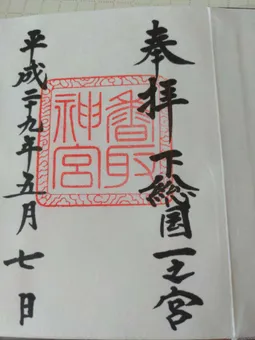 奉拝 下総国一之宮
香取神宮
平成二十九年五月七日